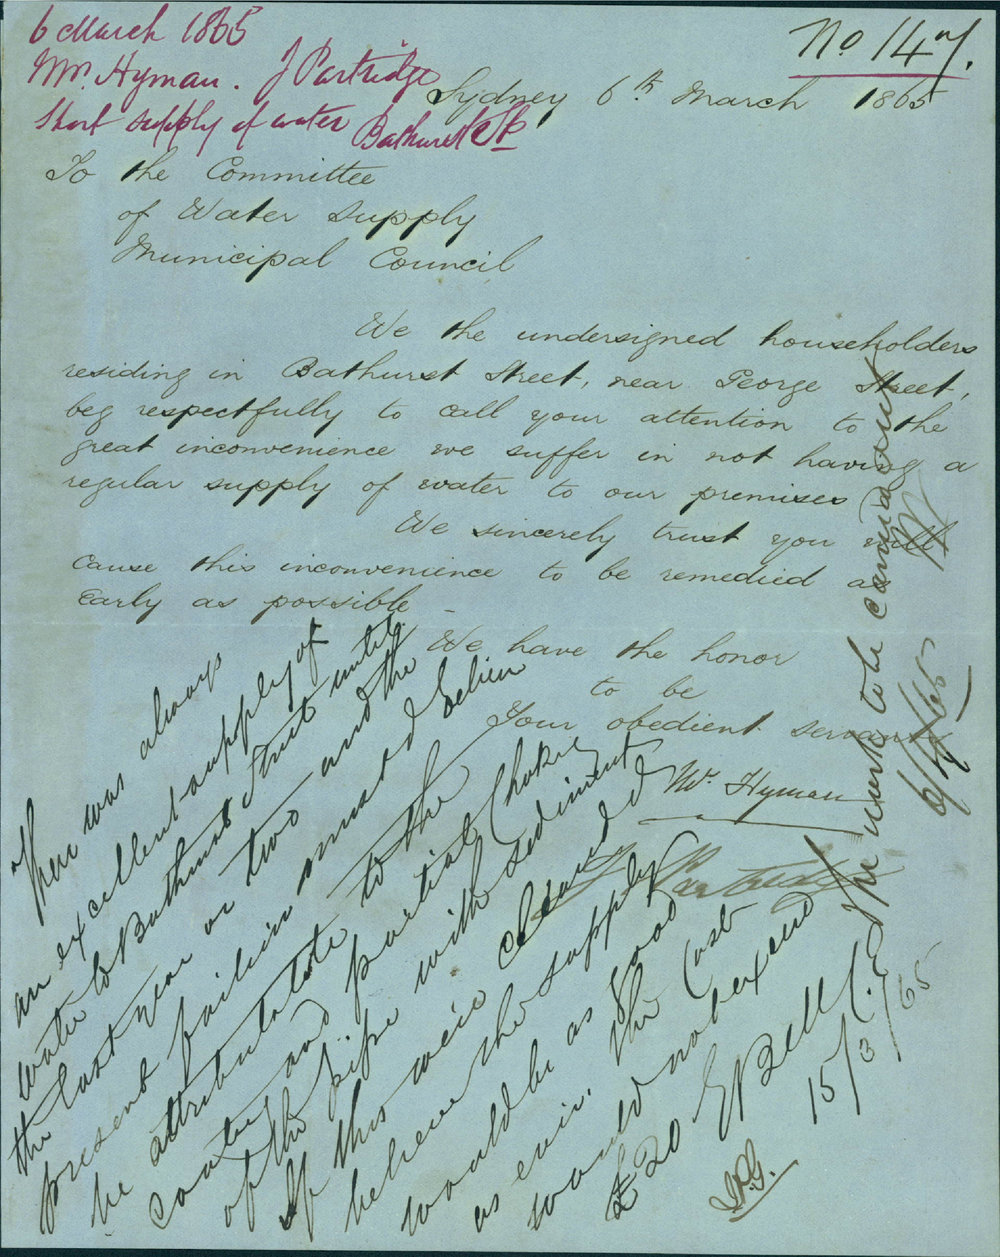 6 March 1865
Mr. Hyman. J Partridge
Short supply of water Bathurst St
No 147.
Sydney 6th March 1865
To the Committee
of Water Supply
Municipal Council
We the undersigned householders
residing in Bathurst Street, near George Street,
beg respectfully to call your attention to the
great inconvenience we suffer in not having a
regular supply of water to our premises
We sincerely trust you will
cause this inconvenience to be remedied as
early as possible
We have the honor
to be
Your obedient servants
Mr. Hyman
J Partridge
There was always
an excellent supply of
water to Bathurst Street until
the last year or two and the
present failing I believe
be attributable to the
and partial choking
of the pipe with sediment
If this were cleaned I
believe the supply
would be as good
as ever. The cost
would not exceed
£20 E Bell C.E
15/3/65
The work to be carried out
6/4/65